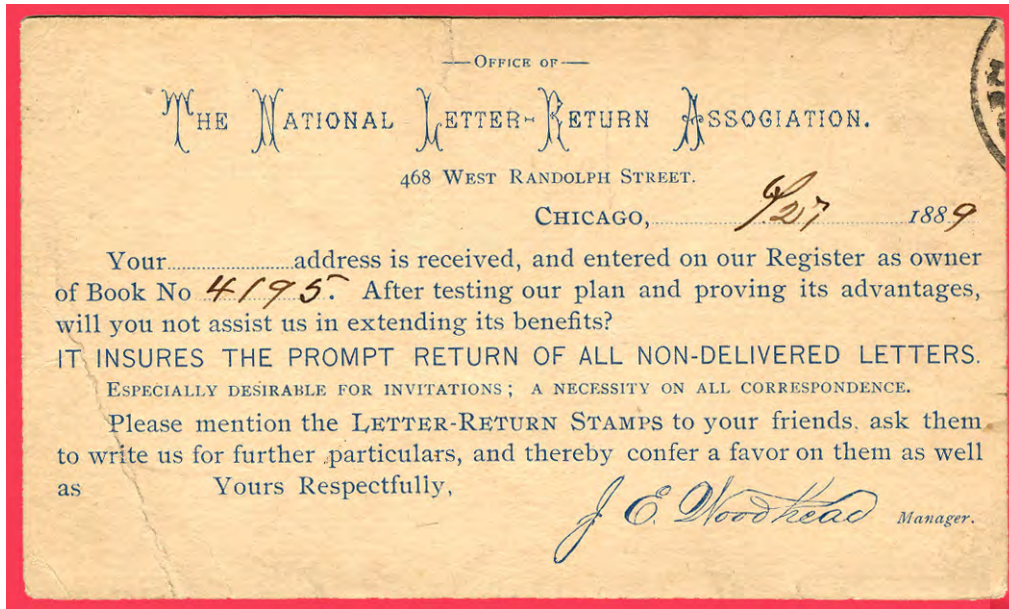 —OFFICE OF—
THE NATIONAL LETTER-RETURN ASSOCIATION.
468 WEST RANDOLPH STREET.
CHICAGO, 6/27 1889
Your address is received, and entered on our Register as owner
of Book No 4195. After testing our plan and proving its advantages,
will you not assist us in extending its benefits?
IT INSURES THE PROMPT RETURN OF ALL NON-DELIVERED LETTERS.
ESPECIALLY DESIRABLE FOR INVITATIONS; A NECESSITY ON ALL CORRESPONDENCE.
Please mention the LETTER-RETURN STAMPS to your friends, ask them
to write us for further particulars, and thereby confer a favor on them as well
as Yours Respectfully,
J E. Woodhead Manager.